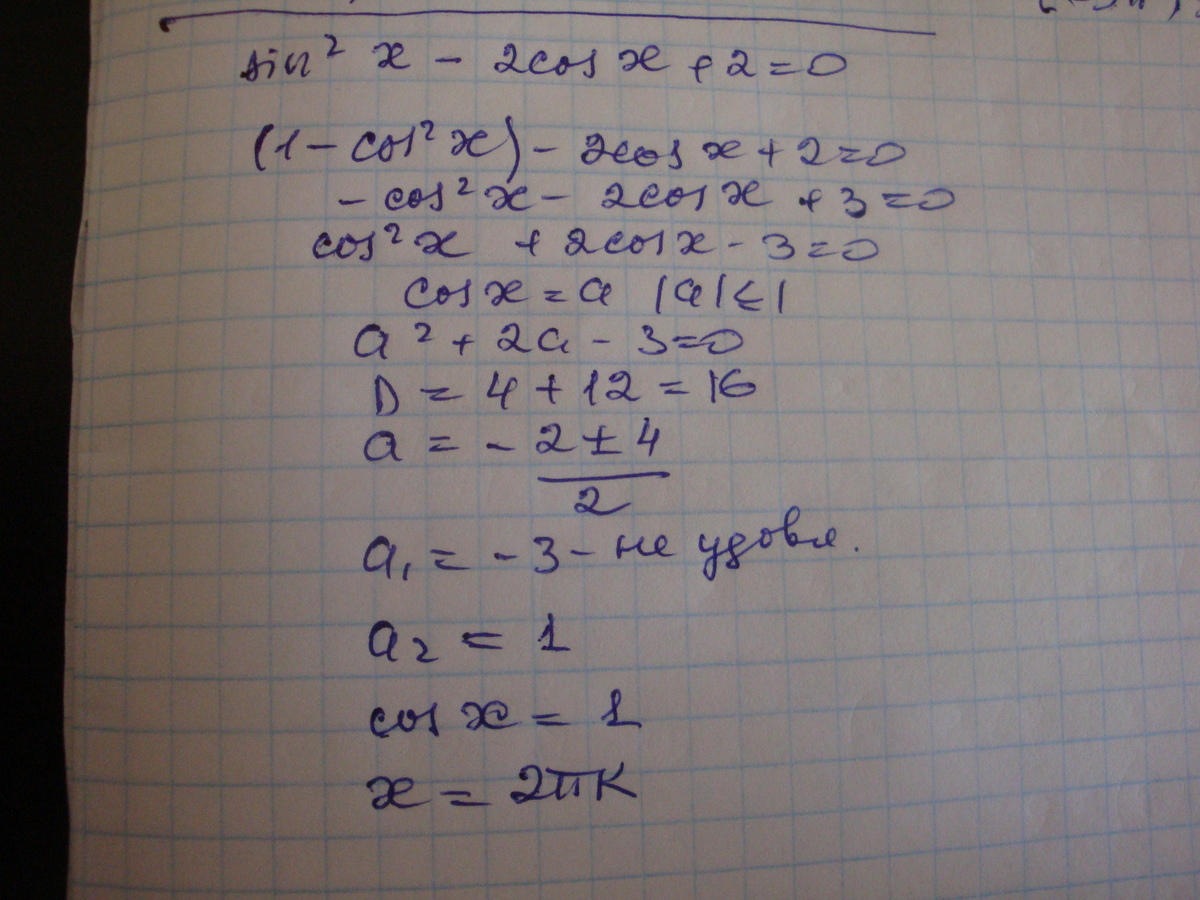 sin² x - 2cos x + 2 = 0
(1 - cos² x) - 2cos x + 2 = 0
- cos² x - 2cos x + 3 = 0
cos² x + 2cos x - 3 = 0
cos x = a |a| ≤ 1
a² + 2a - 3 = 0
D = 4 + 12 = 16
a = - 2 ± 4
2
a₁ = - 3 - не удовл.
a₂ = 1
cos x = 1
x = 2πk